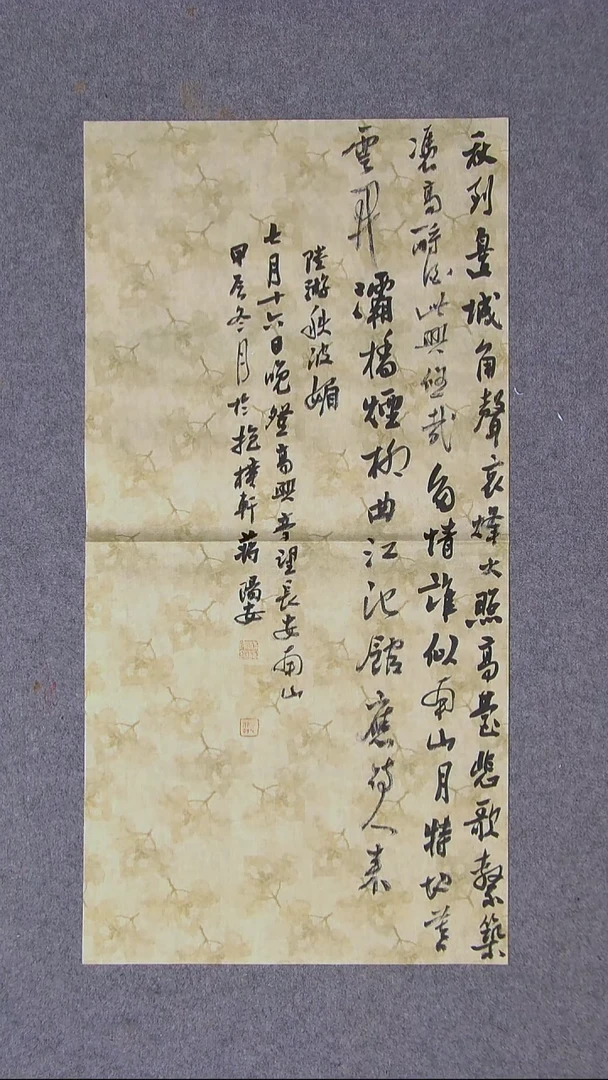 秋到邊城角聲哀烽火照高臺悲歌擊築
憑高酹酒此興悠哉多情誰似南山月特地暮
雲開灞橋煙柳曲江池館應待人來
陸游秋波媚
七月十六日晚登高興亭望長安南山
甲辰冬月於抱樸軒蔣陽